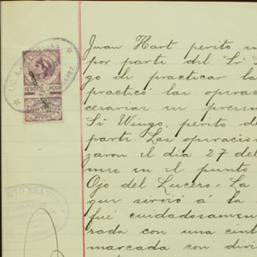 Juan Hart perito
por parte del Si
go de practicar la
practicó las opera
cesarias en presen
Si Wingo, perito d
parte. Las operacio
zaron el dia 27 de
mes en el punto
Ojo del Lucero. La
que sirvió á la
fué cuidadosamen
rada con una cint
marcada con divi